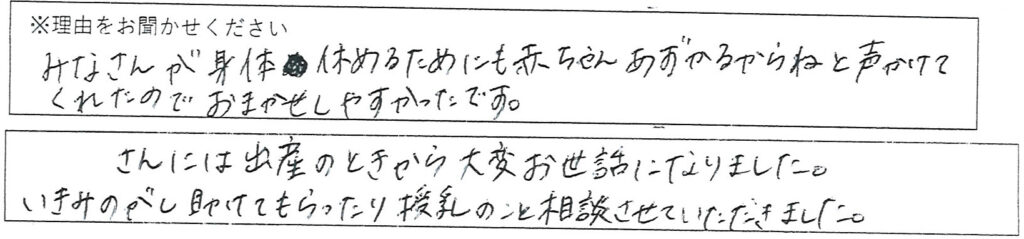 ※理由をお聞かせください
みなさんが身体 休めるためにも赤ちゃんあずかるからねと声かけて
くれたので おまかせしやすかったです。
さんには出産のときから大変お世話になりました。
いきみのがし助けてもらったり授乳のこと相談させていただきました。